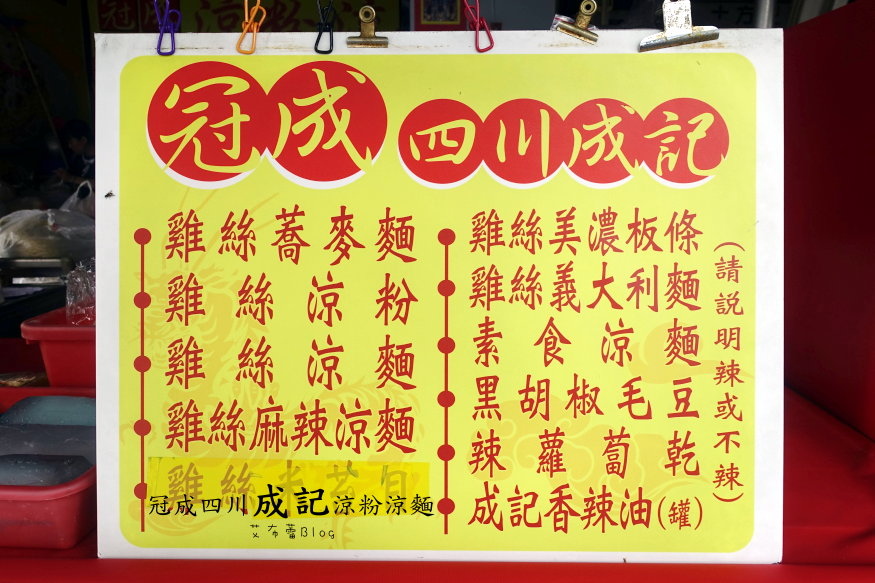 冠成 四川成記
雞絲蕎麥麵
雞絲涼粉
雞絲涼麵
雞絲麻辣涼麵
冠成四川成記涼粉涼麵
艾布蕾Blog
雞絲美濃板條
雞絲義大利麵
素食涼麵
黑胡椒毛豆
辣蘿蔔乾
成記香辣油(罐)
(請說明辣或不辣)